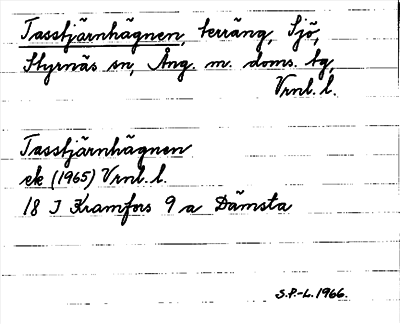 Tasstjärnhägnen, terräng, Sjö,
Styrnäs sn, Ång. m. doms. tg,
Vrnl. l.
Tasstjärnhägnen
ek (1965) Vrnl. l.
18 I Kramfors 9 a Dämsta
S.P.-L. 1966.